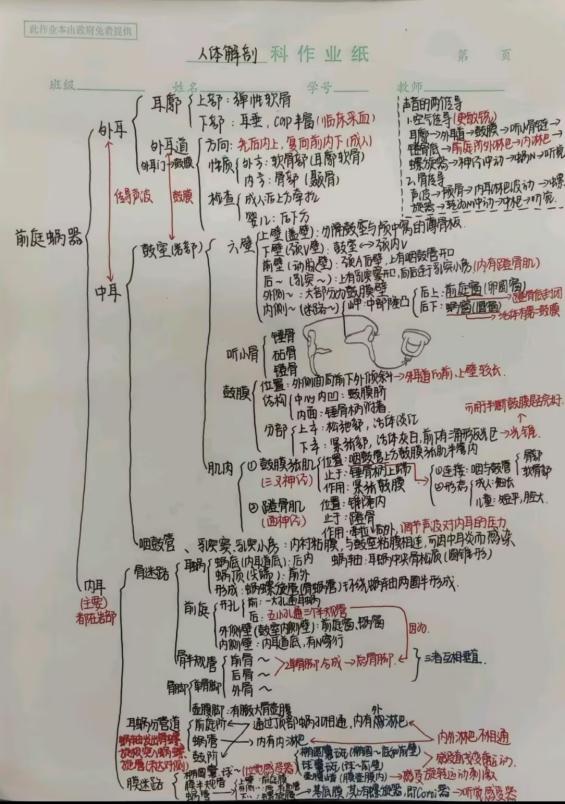 此作业本由政府免费提供
人体解剖 科作业纸 第 页
班级 姓名 学号 教师
前庭蜗器
外耳
耳廓
上部：弹性软骨
下部：耳垂，cap丰富（临床采血）
外耳道
外耳门→鼓膜
方向：先后内上，复向前内下（成人）
性质
外⅓：软骨部（耳廓软骨）
内⅔：骨部（颞骨）
检查
成人：向后上方牵扯
婴儿：后下方
传导声波
鼓膜
声音的两位传导
1.空气传导（更敏锐）
耳廓→外耳道→鼓膜→听小骨链→
镫骨底→前庭阶外淋巴→内淋巴→
螺旋器→神经冲动→蜗N→听觉
2.骨传导
声波→颅骨→内耳淋巴波动→螺
旋器→蜗N冲动→中枢→听觉
中耳
鼓室（岩部）
六壁
上壁（盖壁）：分隔鼓室与颅中窝的薄骨板
下壁（颈V壁）：鼓室↔颈内V
前壁（动脉壁）：颈A后壁，上有咽鼓管开口
后～（乳突～）：上有乳突窦开口，向后连于乳突小房（内有镫骨肌）
外侧～：大部分为鼓膜壁
内侧～（迷路～）
岬：中部隆凸
后上：前庭窗（卵圆窗）
后下：蜗窗（圆窗）
听小骨
锤骨
砧骨
镫骨
鼓膜
位置：外侧面向前下外倾斜→外耳道
结构
中心内凹：鼓膜脐
内面：锤骨柄附着
分部
上¼：松弛部，活体淡红
下¾：紧张部，活体灰白，前下有三角形反光区→光锥
可用于判断鼓膜是否完好
肌肉
①鼓膜张肌
（三叉神经）
位置：咽鼓管上方鼓膜张肌半管内
止于：锤骨柄上端
作用：紧张鼓膜
②镫骨肌
（面神经）
位置：锥隆内
止于：镫骨
调节声波对内耳的压力
①连接：咽与鼓室
骨部
软骨部
②形态
成人：细长
儿童：短平，腔大
咽鼓管、乳突窦、乳突小房：内衬粘膜，与鼓室粘膜相连，可因中耳炎而感染
内耳
（主要）
都在岩部
骨迷路
耳蜗
蜗底（内耳道底）：后内
蜗顶（尖端）：前外
形成：蜗螺旋管（骨蜗管）环绕蜗轴两圈半形成
蜗轴：耳蜗中央骨松质（圆锥形）
前庭
开孔
前：一大孔通耳蜗
后：五小孔通三个半规管
外侧壁（鼓室内侧壁）：前庭窗，蜗窗
内侧壁：内耳道底，有N穿行
骨半规管
前骨～
后骨～
外骨～
骨脚
单骨脚
壶腹脚：有膨大骨壶腹
三者互相垂直
耳蜗分管道
前庭阶
蜗管
鼓阶
通过顶部蜗孔相通，内有外淋巴
内有内淋巴
内外淋巴不相通
膜迷路
椭圆囊、球～（位觉感受器）
膜半规管
蜗管
椭圆囊斑（椭圆～底和前壁）
球囊斑（球～前壁）
壶腹嵴（膜壶腹内）→感受旋转运动刺激
基底膜，其上有螺旋器，即Corti器→听觉感受器